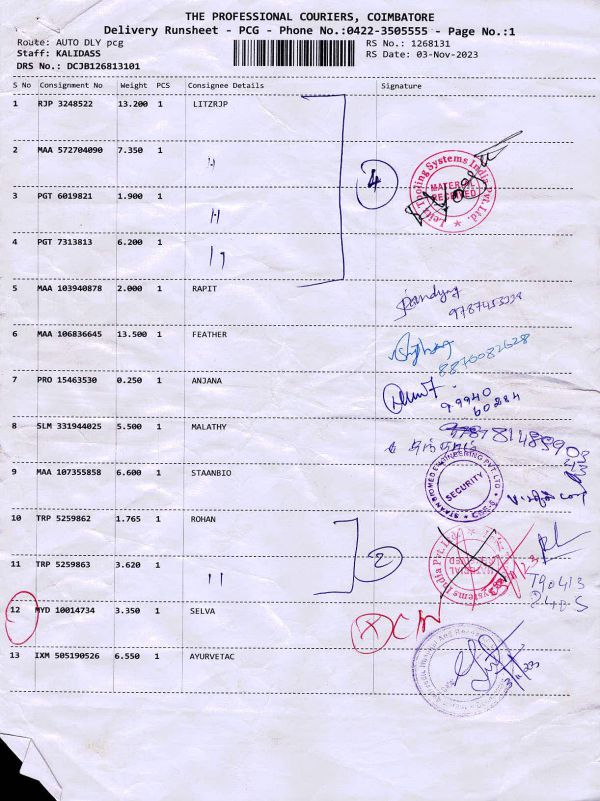 THE PROFESSIONAL COURIERS, COIMBATORE
Delivery Runsheet - PCG - Phone No.:0422-3505555 - Page No.:1
Route: AUTO DLY pcg RS No.: 1268131
Staff: KALIDASS RS Date: 03-Nov-2023
DRS No.: DCJB126813101
S No Consignment No Weight PCS Consignee Details Signature
1 RJP 3248522 13.200 1 LITZRJP
2 MAA 572704090 7.350 1 11
4
Leitz Tooling Systems India Pvt. Ltd.
MATERIAL RECEIVED
3 PGT 6019821 1.900 1 11
4 PGT 7313813 6.200 1 11
5 MAA 103940878 2.000 1 RAPIT
6 MAA 106836645 13.500 1 FEATHER
8870082628
7 PRO 15463530 0.250 1 ANJANA
99940
60284
8 SLM 331944025 5.500 1 MALATHY
9 MAA 107355858 6.600 1 STAANBIO
SECURITY
10 TRP 5259862 1.765 1 ROHAN
2
11 TRP 5259863 3.620 1 11
12 MYD 10014734 3.350 1 SELVA
13 IXM 505190526 6.550 1 AYURVETAC